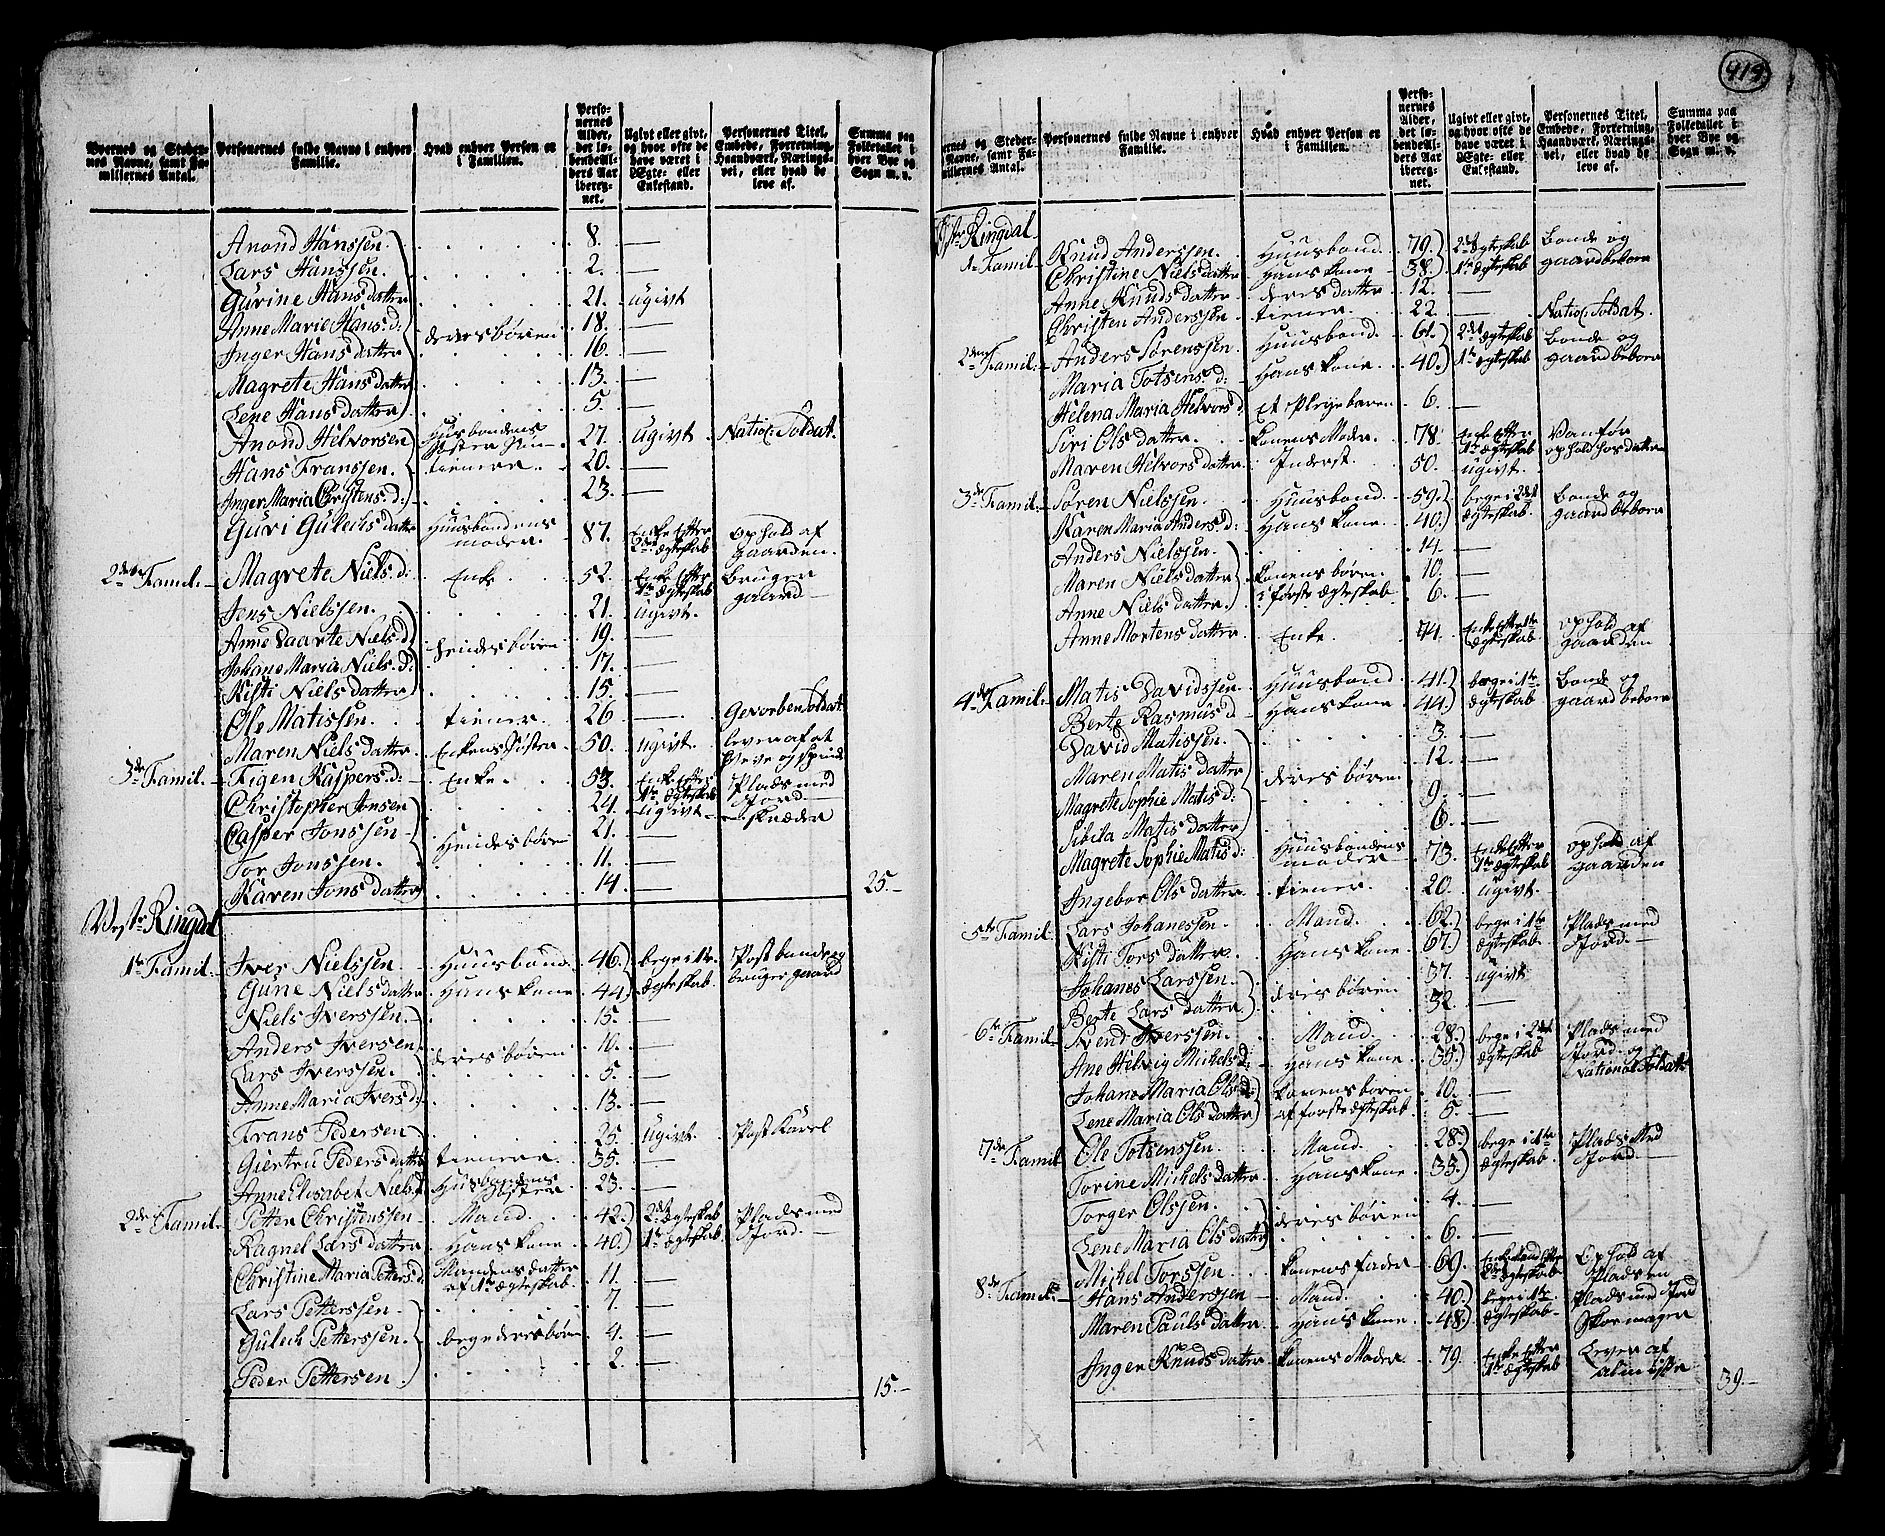 419
Byernes og Stedernes Navne, samt Familiernes Antal.
Personernes fulde Navne i enhver Familie.
Hvad enhver Person er i Familien.
Personernes Alder, det løbende Alders Aar iberegnet.
Ugivt eller givt, og hvor ofte de have været i Ægte- eller Enkestand.
Personernes Titel, Embede, Forretning, Haandværk, Næringsvei, eller hvad de leve af.
Summa paa Folketallet i hver Bye og Sogn m. v.
Anond Hanssen. 8. —
Lars Hanssen. 2. —
Gurine Hans datter 21. ugivt
Anne Marie Hans. d: deres børen 18. —
Inger Hans datter 16. —
Magrete Hans datter 13. —
Lene Hans datter 5. —
Anond Helvorsen Husbondens Søster Søn 27. ugivt Nation: Soldat.
Hans Franssen. tienere 20. —
Inger Maria Christens. d: 23. —
Guri Gulechs datter Huusbondens moder. 87. Enke Efter 2det Ægteskab Ophold af gaarden.
2den Famil: Magrete Niels. d: Enke. 52. Enke Efter 1te Ægteskab Bruger gaard
Jens Nielssen. 21. ugivt.
Anne Daarte Niels. d 19. —
Johane Maria Niels. d: hendes børen 17. —
Kisti Niels datter 15. —
Ole Matissen. tiener. 26 — Gevorben Soldat
Maren Niels datter. Enkens Søster 50. ugivt. lever af at Væve og spinde
3de Famil. Figen Kaspers. d: Enke. 53. Enke Efter 1te Ægteskab Plads med Jord.
Christopher Jonsen 24. ugivt skræder
Casper Jonssen 21. —
Tor Jonssen. Hendes børen 11. —
Karen Jons datter 14. —
25.
Vestr Ringdal
1te Famil. Iver Nielssen Huusbond 46. bege i 1te Ægteskab. Postbonde og bruger gaard
Gune Niels datter. Hans kone 44.
Niels Iverssen. 15. —
Anders Iversen. 10. —
Lars Iverssen. deres børen 5. —
Anne Maria Ivers d: 13. —
Frans Pedersen 25. ugivt. Post Karel
Giertru Peders datter tienere 35. —
Anne Elisabet Niels. d Husbondens Søster 23. —
2de Famil. Petter Christenssen Mand. 42. 2det Ægteskab Plads med Jord.
Ragnel Lars datter Hans kone 40. 1te Ægteskab
Christine Maria Petters d Mandens datter af 1te Ægteskab. 11. —
Lars Petterssen. 7. —
Gulech Petterssen. bege deres børen 4. —
Peder Pettersen 2. —
15.
Byernes og Stedernes Navne, samt Familiernes Antal.
Personernes fulde Navne i enhver Familie.
Hvad enhver Person er i Familien.
Personernes Alder, det løbende Alders Aar iberegnet.
Ugivt eller givt, og hvor ofte de have været i Ægte- eller Enkestand.
Personernes Titel, Embede, Forretning, Haandværk, Næringsvei, eller hvad de leve af.
Summa paa Folketallet i hver Bye og Sogn m. v.
Østr Ringdal
1te Famil. Knud Anderssen. Huusbond 79. 2det Ægteskab Bonde og gaardbeboer
Christine Niels datter Hans kone 58. 1te Ægteskab
Anne Knuds datter deres datter 12. —
Christen Anderssen tiener. 22. — Natio: Soldat.
2den Famil. Anders Sørenssen. Huusbond. 61. 2det Ægteskab Bonde og gaardbeboer
Maria Totsens d: Hans kone. 40. 1te Ægteskab
Helena Maria Helvors d. Et Plejebaren 6. —
Siri Ols datter. konens Moder. 78. Enke Efter 1te Ægteskab Vanfør ophold hos datter
Maren Helvors datter Inderst. 50. ugivt.
3de Famil. Søren Nielssen. Huusbond. 59. bege i 2det Ægteskab. Bonde og gaardbeboer
Karen Maria Anders. d: Hans kone. 40.
Anders Nielssen. 14. —
Maren Niels datter konens børen i første Ægteskab 10. —
Anne Niels datter. 6. —
Anne Mortens datter Enke. 74. Enke Efter 1te Ægteskab. ophold af gaarden
4de Famil: Matis Davidssen. Huusbond 41. bege i 1te Ægteskab Bonde og gaardbeboer
Berte Rasmus d Hans kone 44.
David Matissen. 3. —
Maren Matis datter deres børen 12. —
Magrete Sophie Matis d: 9. —
Sibila Matis datter 6. —
Magrete Sophie Matis d: Huusbondens moder 73. Enke Efter 1te Ægteskab ophold af gaarden
Ingebor Ols datter tiener. 20. ugivt
5te Famil. Lars Johanessen. Mand. 62. bege i 1te Ægteskab. Plads med Jord.
Kisti Tors datter. Hans kone 67.
Johanes Larssen. deres børen 37. ugivt
Berte Lars datter 32. —
6te Famil. Svend Iverssen. Mand. 28. bege i 2det Ægteskab Plads med Jord og National Soldat
Ane Helvig Michels d: Hans kone 35.
Johane Maria Ols d: konens børen af første Ægteskab 10. —
Lene Maria Ols datter 5. —
7de Famil Ole Totsenssen. Mand. 28. bege i 1te Ægteskab. Plads Med Jord.
Torine Michels datter Hans kone 35.
Torger Olssen. deres børen 4. —
Lene Maria Ols datter 6. —
Michel Torssen konens fader 69. Enkemand Efter 2det Ægteskab Ophold af Pladsen
8de Famil: Hans Anderssen Mand. 40. bege i 1te Ægteskab Plads med Jord Skomager
Maren Pauls datter Hans kone 48.
Inger Knuds datter konens Moder. 79. Enke Efter 1te Ægteskab Lever af almisse
39.